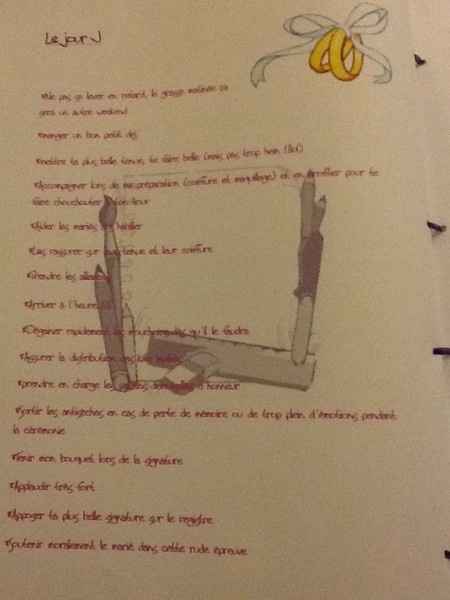 Le jour J
Ne pas se lever en retard, la grasse matinée ce
sera un autre weekend
manger un bon petit dej
mettre ta plus belle tenue, te faire belle (mais pas trop hein (lol)
Accompagner lors de ma préparation (coiffure et maquillage) et en profiter pour te
faire chouchouter à ton tour
Aider les mariés à s'habiller
Les rassurer sur leur tenue et leur coiffure
Prendre les alliances
Arriver à l'heure
Dégainer rapidement les mouchoirs dès qu'il le faudra
Assurer la distribution des
prendre en charge les d'honneur
Sortir les antisèches en cas de perte de mémoire ou de trop plein d'émotions pendant
la cérémonie
Tenir mon bouquet lors de la signature
Applaudir très fort
Apposer ta plus belle signature sur le registre
Soutenir moralement le marié dans cette rude épreuve